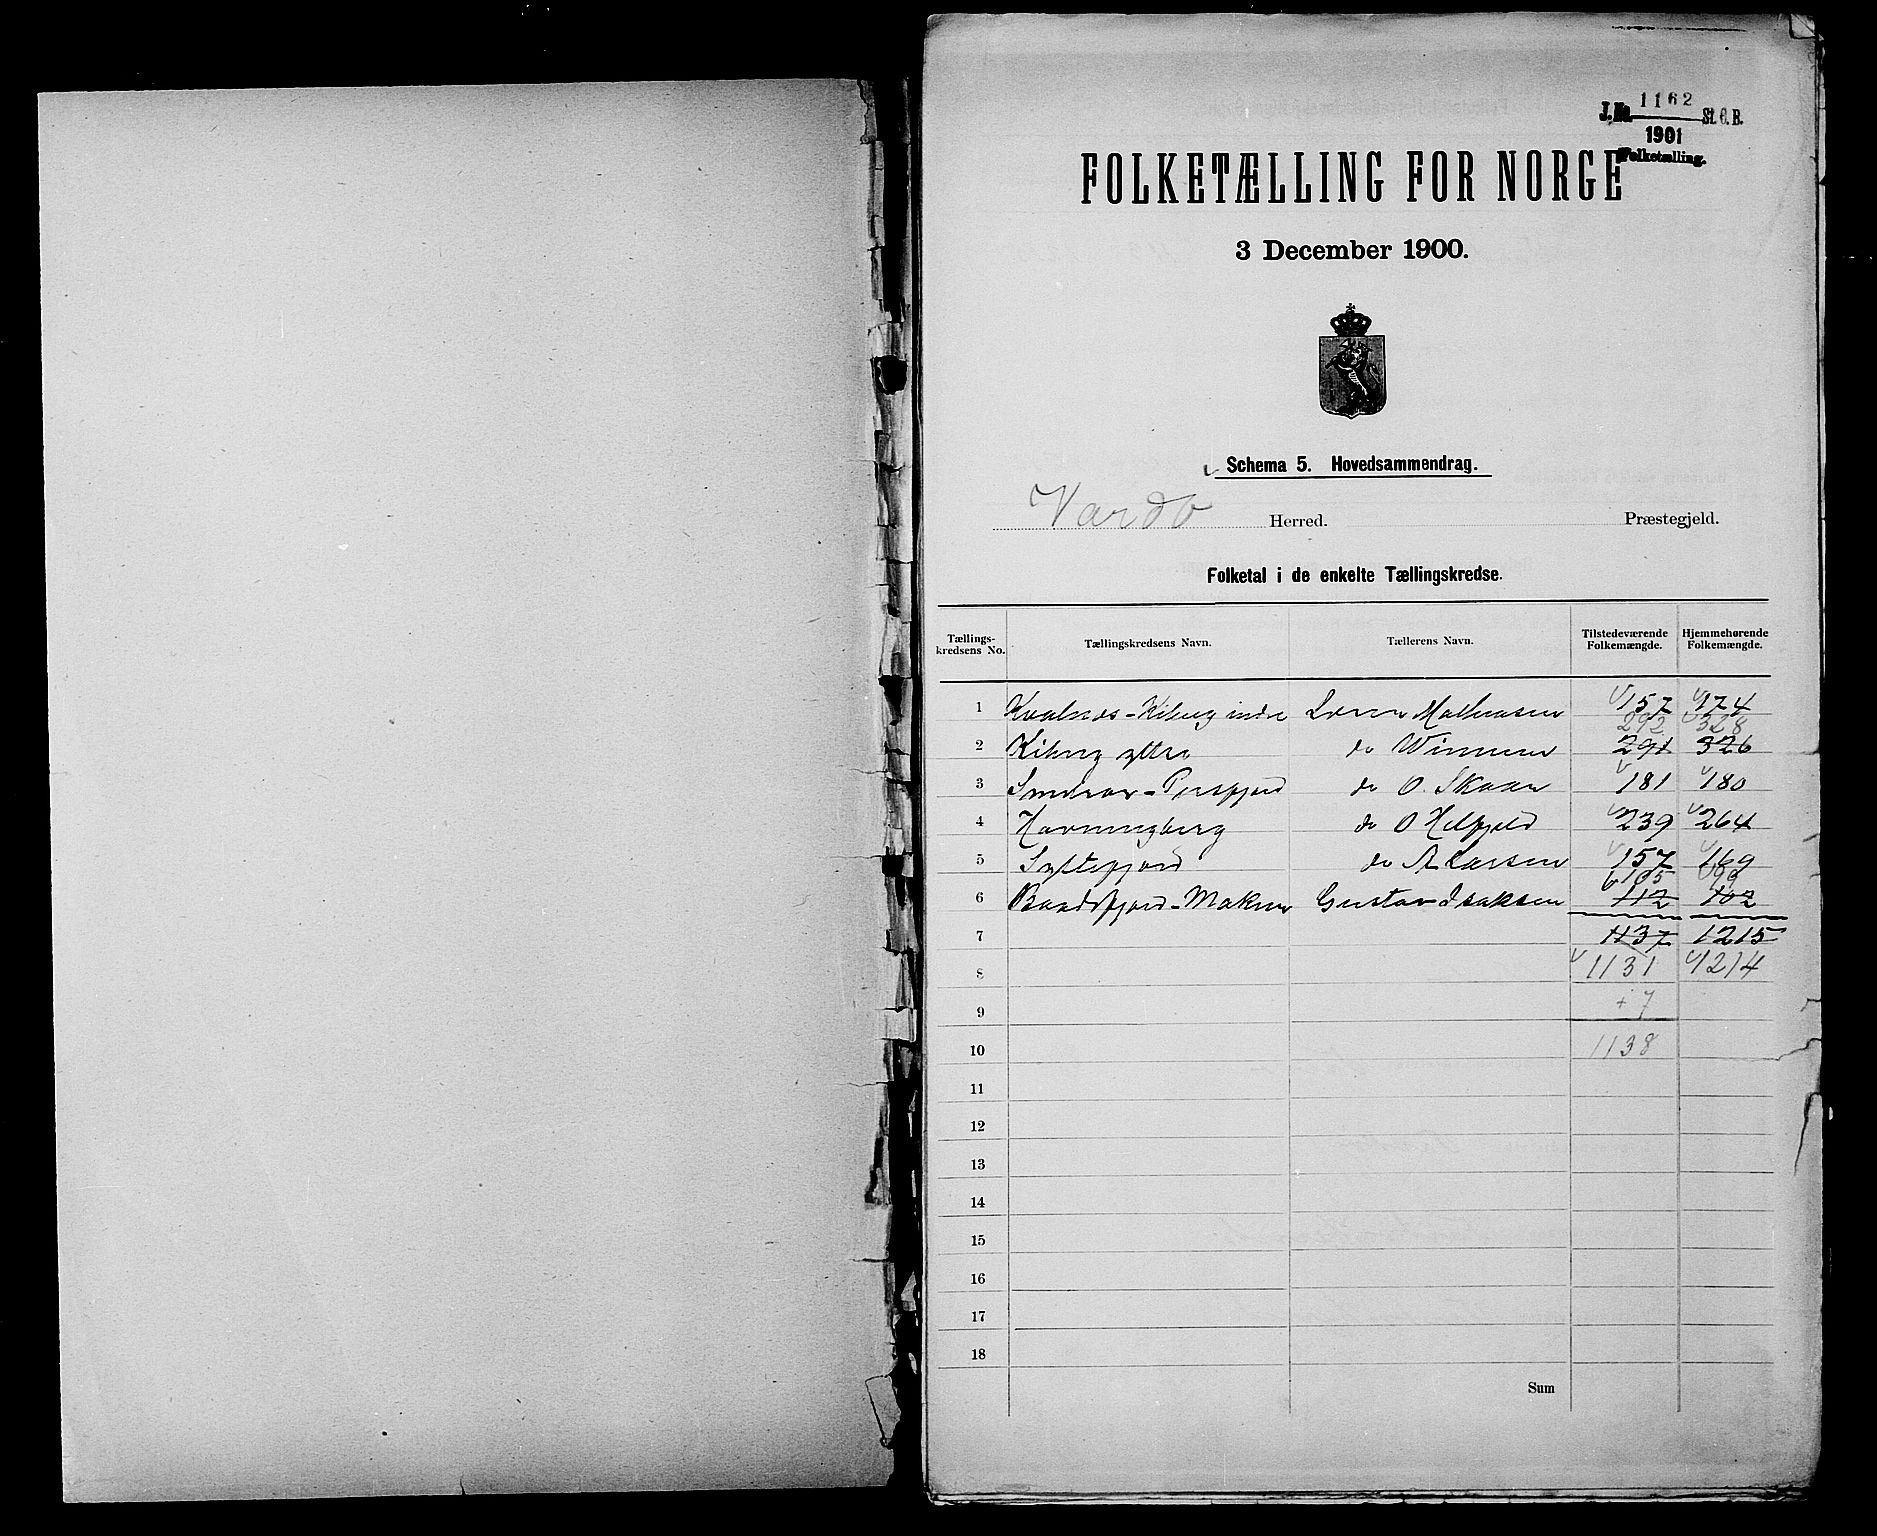 J.No. 1162 St.C.B.
1901
Folketælling.
FOLKETÆLLING FOR NORGE
3 December 1900.
Schema 5. Hovedsammendrag.
Vardø Herred. Præstegjeld.
Folketal i de enkelte Tællingskredse.
Tællings-kredsens No. Tællingskredsens Navn. Tællerens Navn. Tilstedeværende Folkemængde. Hjemmehørende Folkemængde.
1 Kiberg indre 157 174
292 328
2 Kiberg ytre do 291 326
3 Persfjord do O. Skaar 181 180
4 Havningberg do O 239 264
5 Syltefjord do A Larsen 157 169
105 99
6 Baadsfjord - Makur Gustav Isaksen 112 102
7 1137 1215
8 1131 1214
9 + 7
10 1138
11
12
13
14
15
16
17
18
Sum